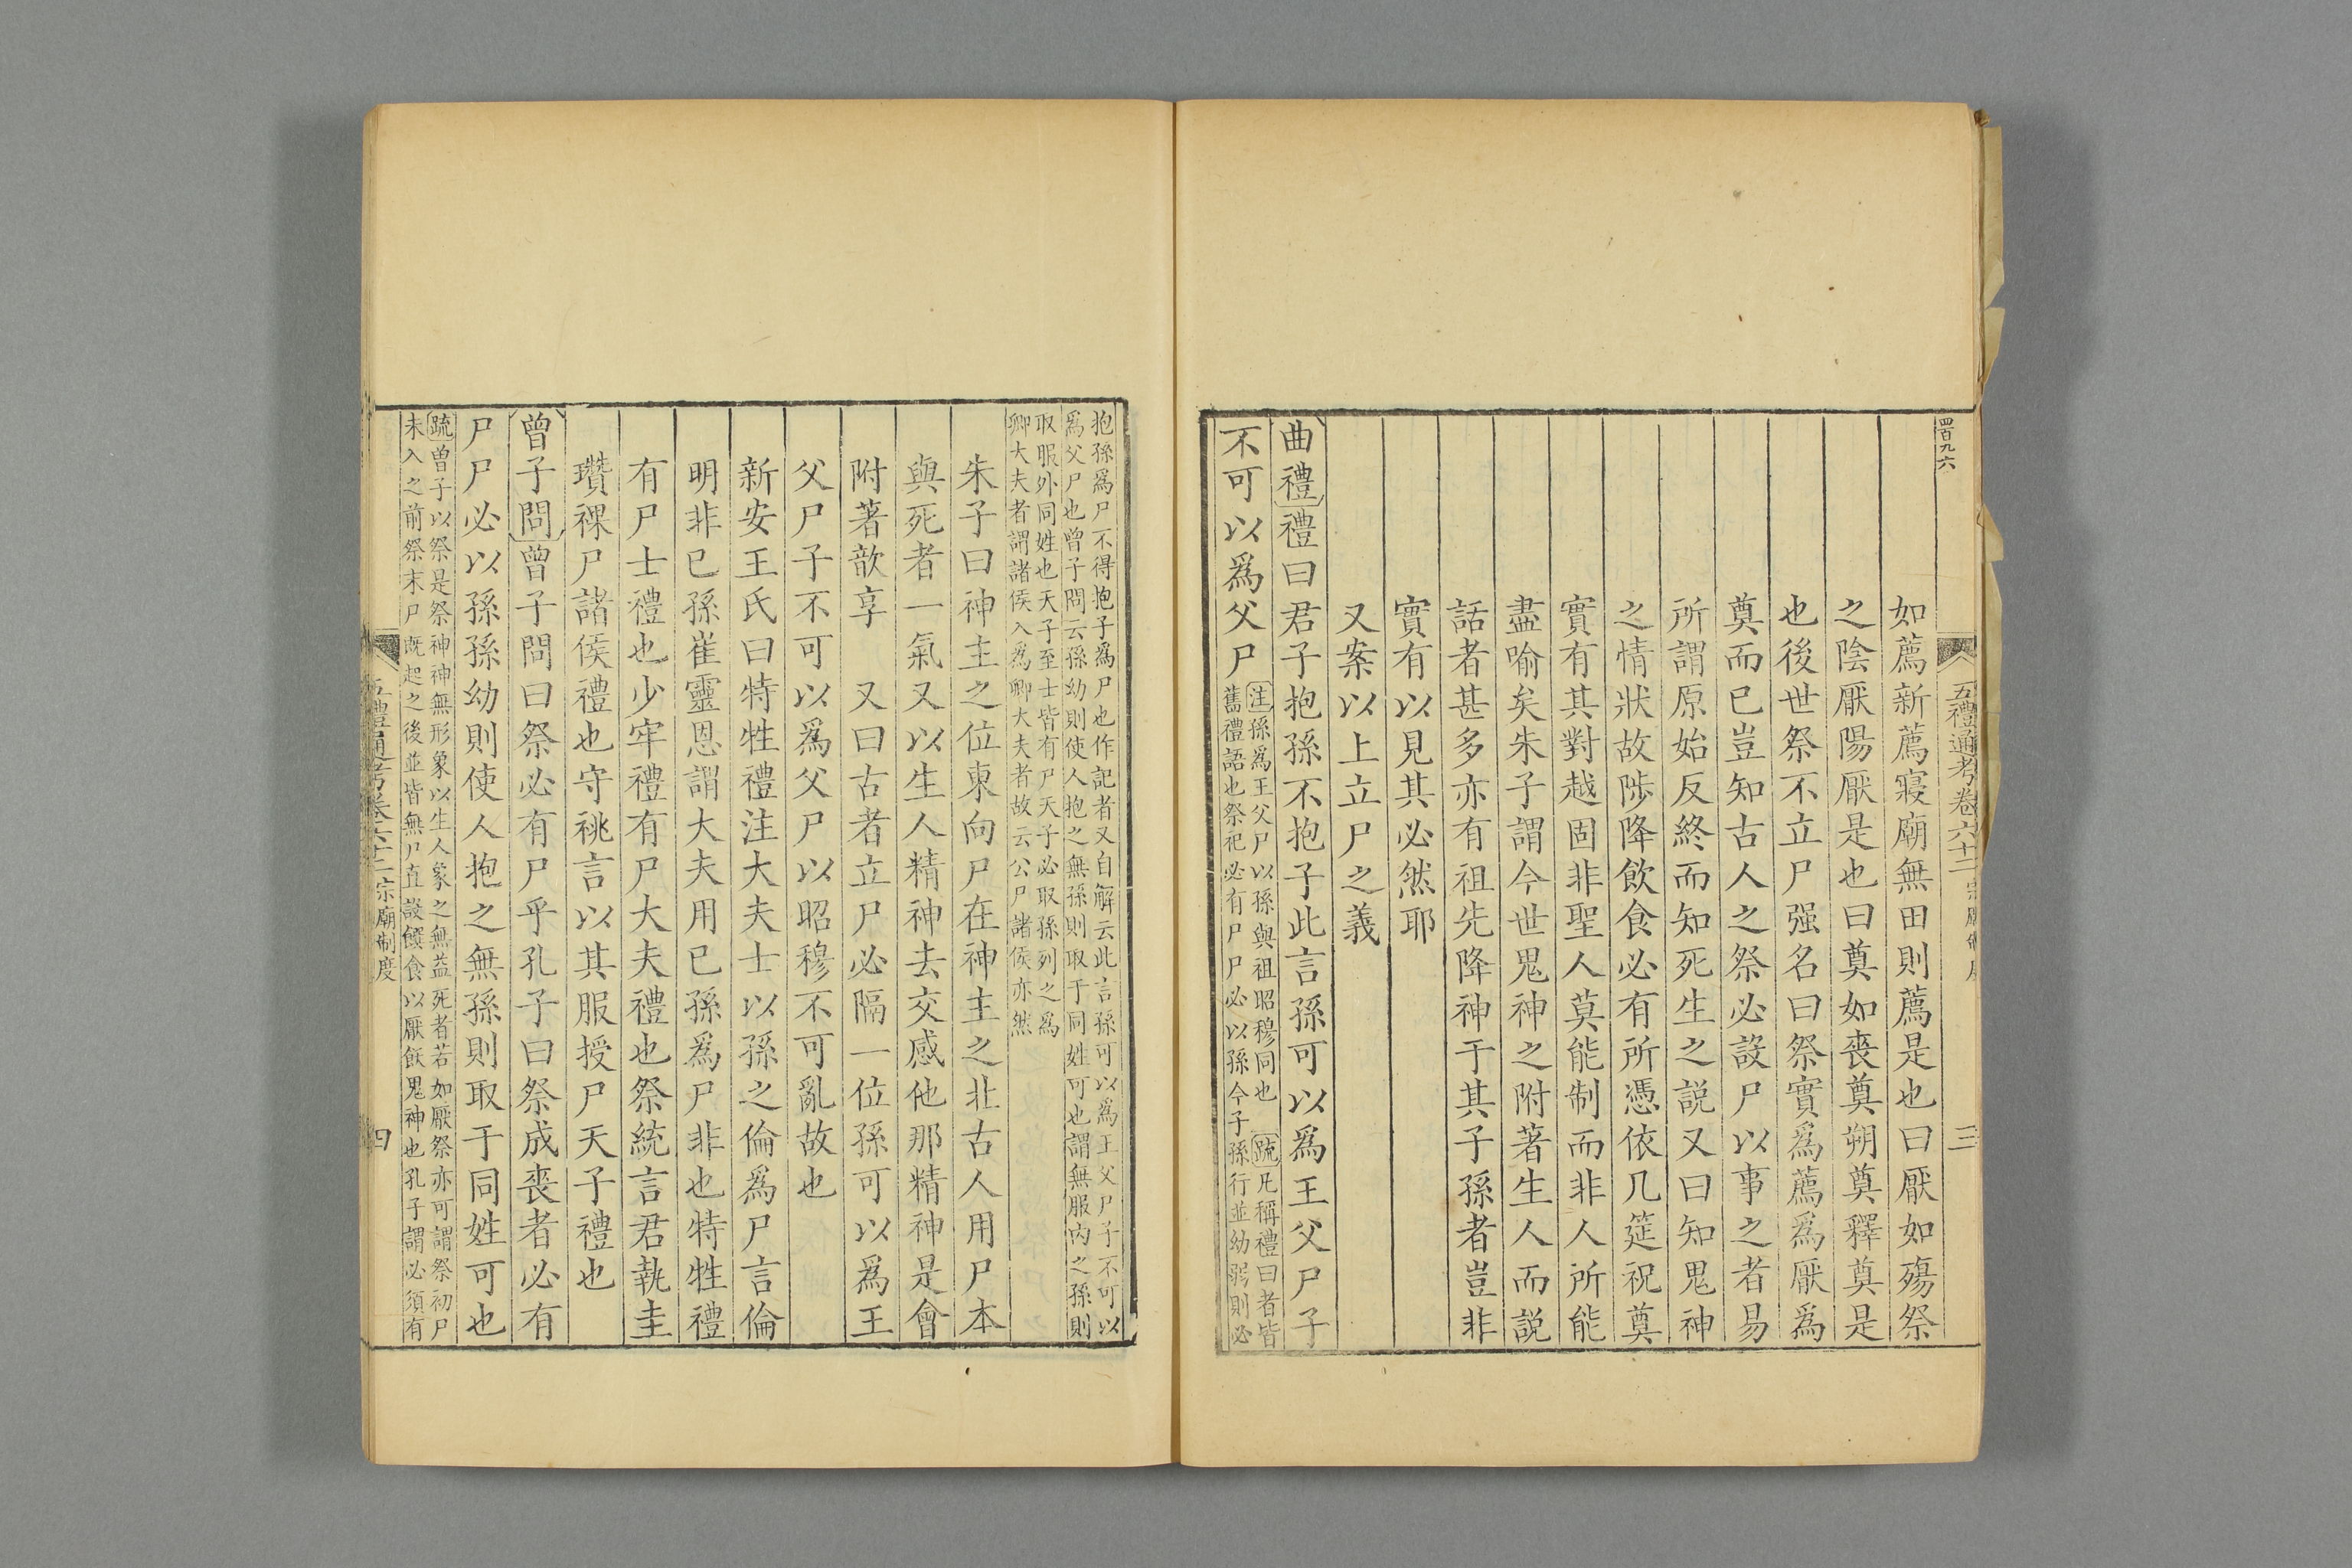 四百九六
五禮通考卷六十二 宗廟制度 三
如薦新薦寢廟無田則薦是也曰厭如殤祭
之陰厭陽厭是也曰奠如喪奠朔奠釋奠是
也後世祭不立尸强名曰祭實爲薦爲厭爲
奠而已豈知古人之祭必設尸以事之者易
所謂原始反終而知死生之說又曰知鬼神
之情狀故陟降飲食必有所憑依几筵祝奠
實有其對越固非聖人莫能制而非人所能
盡喻矣朱子謂今世鬼神之附著生人而說
話者甚多亦有祖先降神于其子孫者豈非
實有以見其必然耶
又案以上立尸之義
曲禮禮曰君子抱孫不抱子此言孫可以爲王父尸子
不可以爲父尸
注孫爲王父尸以孫與祖昭穆同也 疏凡稱禮曰者皆
舊禮語也祭祀必有尸尸必以孫今子孫行並幼弱則必
抱孫爲尸不得抱子爲尸也作記者又自解云此言孫可以爲王父尸子不可以
爲父尸也曾子問云孫幼則使人抱之無孫則取于同姓可也謂無服內之孫則
取服外同姓也天子至士皆有尸天子必取孫列之爲
卿大夫者謂諸侯入爲卿大夫者故云公尸諸侯亦然
朱子曰神主之位東向尸在神主之北古人用尸本
與死者一氣又以生人精神去交感他那精神是會
附著歆享 又曰古者立尸必隔一位孫可以爲王
父尸子不可以爲父尸以昭穆不可亂故也
新安王氏曰特牲禮注大夫士以孫之倫爲尸言倫
明非已孫崔靈恩謂大夫用已孫爲尸非也特牲禮
有尸士禮也少牢禮有尸大夫禮也祭統言君執圭
瓚祼尸諸侯禮也守祧言以其服授尸天子禮也
曾子問曾子問曰祭必有尸乎孔子曰祭成喪者必有
尸尸必以孫孫幼則使人抱之無孫則取于同姓可也
疏曾子以祭是祭神神無形象以生人象之無益死者若如厭祭亦可謂祭初尸
未入之前祭末尸既起之後並皆無尸直設饌食以厭飫鬼神也孔子謂必須有
五禮通考卷六十二 宗廟制度 四